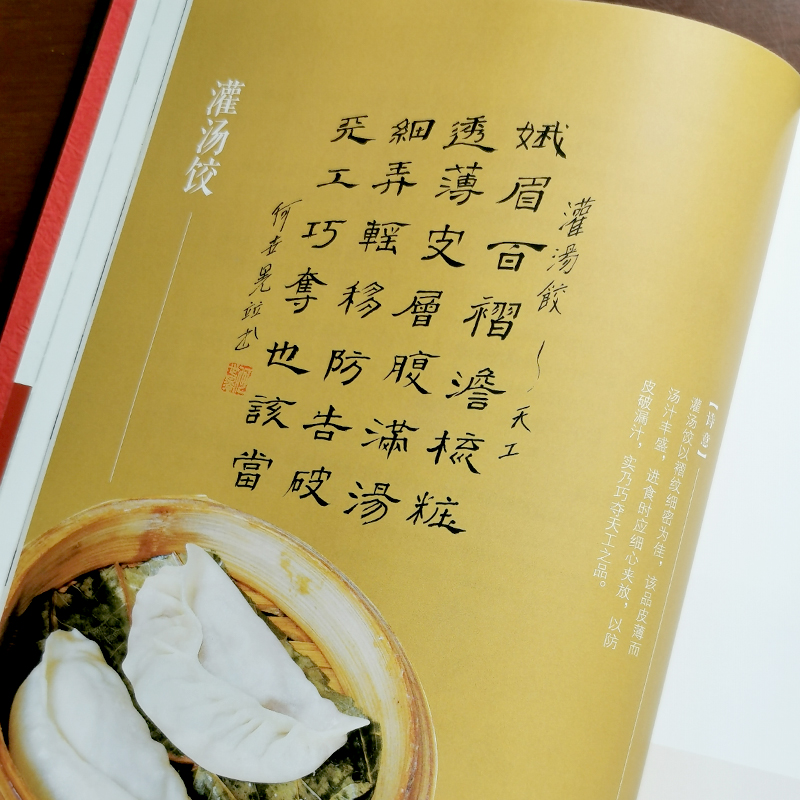 【诗意】
灌汤饺以褶纹细密为佳，该品皮薄而
汤汁丰盛，进食时应细心夹放，以防
皮破漏汁，实乃巧夺天工之品。
灌湯餃～天工
娥眉百褶澹梳粧
透薄皮層腹滿湯
細弄輕移防告破
天工巧奪也該當
何世晃
灌汤饺